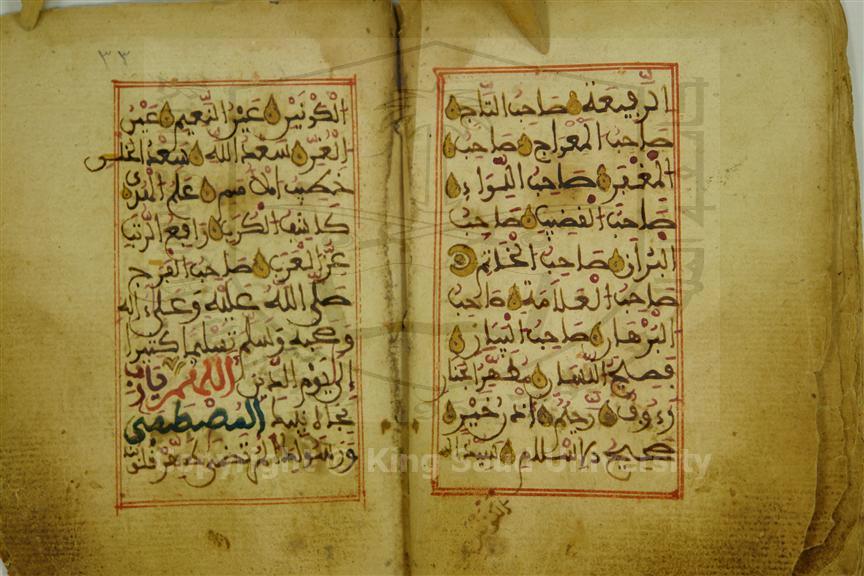 الرفيعة صاحب التاج
صاحب المعراج صاحب
المغفر صاحب اللواء
صاحب القضيب صاحب
البراق صاحب الخاتم
صاحب العلامة صاحب
البرهان صاحب البيان
فصيح اللسان مطهر الجنان
رءوف رحيم اذن خير
صحيح الاسلام سيد
الكونين
٣٣
الكونين عين النعيم عين
الغر سعد الله سعد الخلق
خطيب الامم علم الهدى
كاشف الكرب رافع الرتب
عز العرب صاحب الفرج
صلى الله عليه وعلى ءاله
وصحبه وسلم تسليما كثيرا
الى يوم الدين اللهم يارب
بجاه نبيك المصطفى
ورسولك المرتضى طهر قلو
Copyright © King Saud University